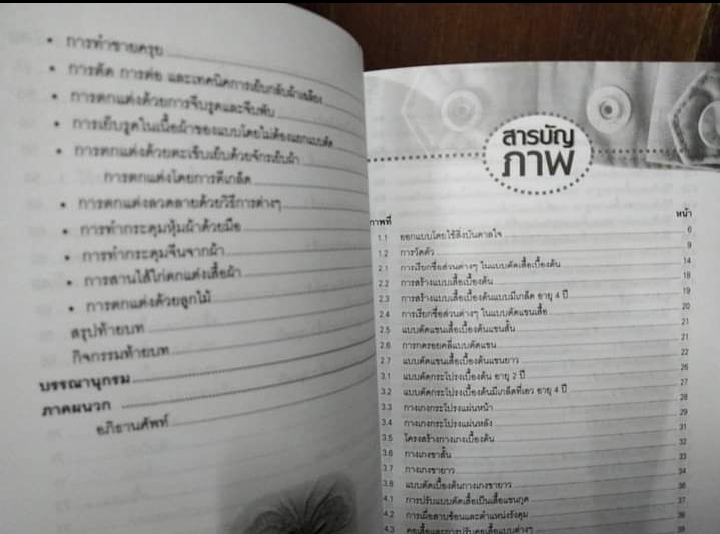 • การทำชายครุย
• การตัด การต่อ และเทคนิคการเย็บกลับผ้าเฉลียง
• การตกแต่งด้วยการจีบรูดและจีบพับ
• การเย็บรูดในเนื้อผ้าของแบบโดยไม่ต้องแยกแบบตัด
• การตกแต่งด้วยตะเข็บเย็บด้วยจักรเย็บผ้า
การตกแต่งโดยการตีเกล็ด
• การตกแต่งลวดลายด้วยวิธีการต่างๆ
• การทำกระดุมหุ้มผ้าด้วยมือ
• การทำกระดุมจีนจากผ้า
• การสานไส้ไก่ตกแต่งเสื้อผ้า
• การตกแต่งด้วยลูกไม้
สรุปท้ายบท
กิจกรรมท้ายบท
บรรณานุกรม
ภาคผนวก
อภิธานศัพท์
สารบัญ
ภาพ
ภาพที่ หน้า
1.1 ออกแบบโดยใช้สิ่งบันดาลใจ 6
1.2 การวัดตัว 9
2.1 การเรียกชื่อส่วนต่างๆ ในแบบตัดเสื้อเบื้องต้น 14
2.2 การสร้างแบบเสื้อเบื้องต้น 18
2.3 การสร้างแบบเสื้อเบื้องต้นแบบมีเกล็ด อายุ 4 ปี 19
2.4 การเรียกชื่อส่วนต่างๆ ในแบบตัดแขนเสื้อ 20
2.5 แบบตัดแขนเสื้อเบื้องต้นแขนสั้น 21
2.6 การกดรอยคลี่แบบตัดแขน 21
2.7 แบบตัดแขนเสื้อเบื้องต้นแขนยาว 22
3.1 แบบตัดกระโปรงเบื้องต้น อายุ 2 ปี 26
3.2 แบบตัดกระโปรงเบื้องต้นมีเกล็ดที่เอว อายุ 4 ปี 27
3.3 กางเกงกระโปรงแผ่นหน้า 28
3.4 กางเกงกระโปรงแผ่นหลัง 29
3.5 โครงสร้างกางเกงเบื้องต้น 31
3.6 กางเกงขาสั้น 32
3.7 กางเกงขายาว 33
3.8 แบบตัดเบื้องต้นกางเกงขายาว 34
4.1 การปรับแบบตัดเสื้อเป็นเสื้อแขนกุด 37
4.2 การเผื่อสาบซ้อนและตำแหน่งรังดุม 38
4.3 คอเสื้อและการปรับคอเสื้อแบบต่างๆ 39